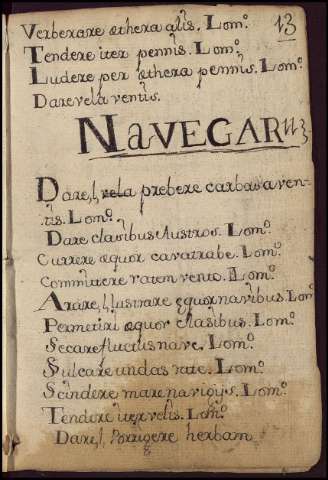 Verberare æthera alis. Lomº.
13
Tendere iter pennis. Lomº.
Ludere per æthera pennis. Lomº.
Dare vela ventis.
NaVEGAR
Dare, l, vela prebere carbasa ven-
tis. Lomº.
Dare clasibus Austros. Lomº.
Currere æquor cava trabe. Lomº.
Committere ratem vento. Lomº.
Arare, l, lustrare æquor navibus. Lomº
Permetiri æquor clasibus. Lomº.
Secare fluctus nave. Lomº.
Sulcare undas rate. Lomº.
Scindere mare navigijs. Lomº.
Tendere iter velis. Lomº.
Dare, l, Porrigere herbam